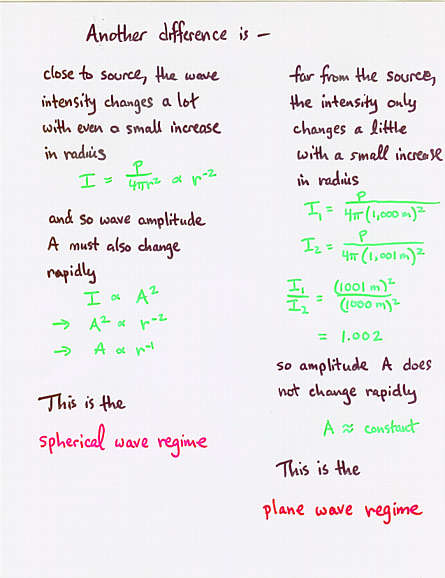 Another difference is —
close to source, the wave
intensity changes a lot
with even a small increase
in radius
I = P / 4πr² ∝ r⁻²
and so wave amplitude
A must also change
rapidly
I ∝ A²
→ A² ∝ r⁻²
→ A ∝ r⁻¹
This is the
spherical wave regime
far from the source,
the intensity only
changes a little
with a small increase
in radius
I₁ = P / 4π(1,000 m)²
I₂ = P / 4π(1,001 m)²
I₁ / I₂ = (1001 m)² / (1000 m)²
= 1.002
so amplitude A does
not change rapidly
A ≈ constant
This is the
plane wave regime